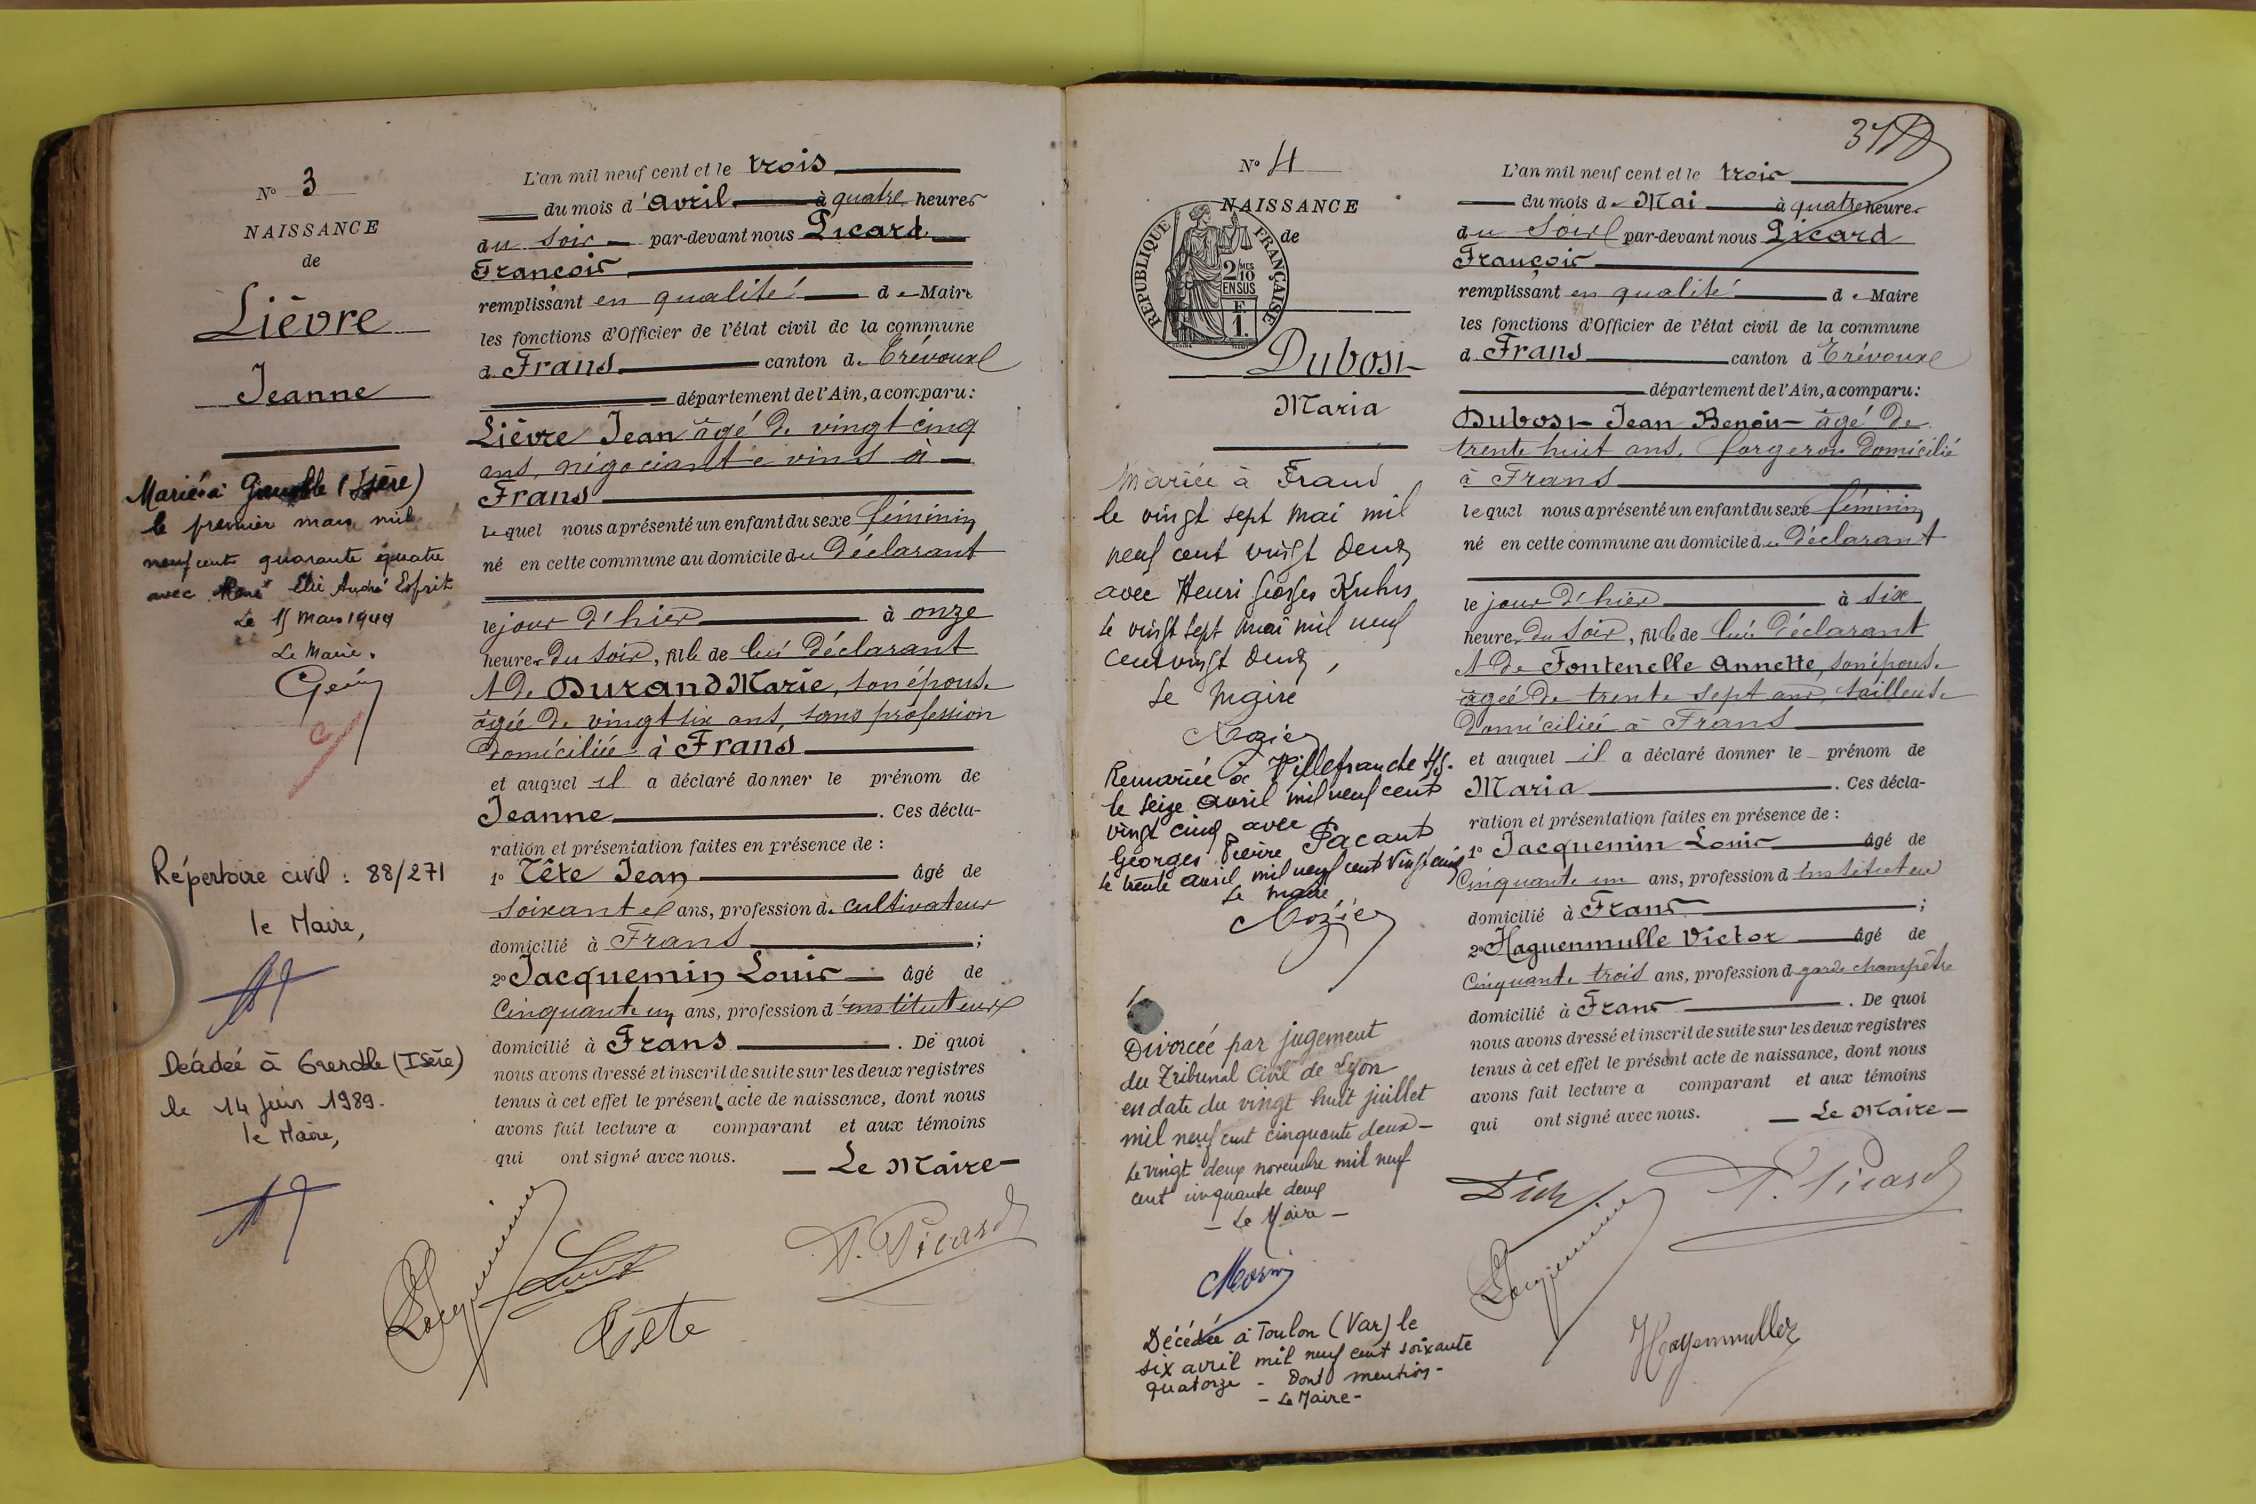 N° 3
NAISSANCE
de
Lièvre
Jeanne
Mariée à Grenoble (Isère)
le premier mars mil
neuf cent quarante quatre
avec René Elie André Esprit
Le 15 Mars 1944
Le Maire.
Répertoire civil : 88/271
le Maire,
Décédée à Grenoble (Isère)
le 14 juin 1989.
le Maire,
L'an mil neuf cent et le trois
du mois d'avril à quatre heures
du soir par-devant nous Picard
François
remplissant en qualité de Maire
les fonctions d'Officier de l'état civil de la commune
d Frans canton de Trévoux
département de l'Ain, a comparu :
Lièvre Jean âgé de vingt cinq
ans, négociant e vins à
Frans
lequel nous a présenté un enfant du sexe féminin
né en cette commune au domicile du Déclarant
le jour d'hier à onze
heures du soir, fille de lui Déclarant
& de Durand Marie, son épouse
âgée de vingt six ans, sans profession
domiciliée à Frans
et auquel il a déclaré donner le prénom de
Jeanne. Ces décla-
ration et présentation faites en présence de :
1° Tête Jean âgé de
soixante ans, profession de cultivateur
domicilié à Frans ;
2° Jacquemin Louis âgé de
Cinquante un ans, profession d'instituteur
domicilié à Frans. De quoi
nous avons dressé et inscrit de suite sur les deux registres
tenus à cet effet le présent acte de naissance, dont nous
avons fait lecture a comparant et aux témoins
qui ont signé avec nous. — Le Maire —
Jacquemin
Tête
F. Picard
N° 4
NAISSANCE
de
RÉPUBLIQUE FRANÇAISE
2 MES
10
EN SUS
F
1.
Dubost
Maria
Mariée à Frans
le vingt sept mai mil
neuf cent vingt deux
avec Henri Georges Kuhn
le vingt sept mai mil neuf
cent vingt deux,
Le Maire
Remariée à Villefranche s/s.
le seize avril mil neuf cent
vingt cinq avec Pacaut
Georges Pierre
le trente avril mil neuf cent vingt cinq
Le Maire
Divorcée par jugement
du Tribunal Civil de Lyon
en date du vingt huit juillet
mil neuf cent cinquante deux —
Le vingt deux novembre mil neuf
cent cinquante deux
— Le Maire —
Morin
Décédée à Toulon (Var) le
six avril mil neuf cent soixante
quatorze - Dont mention -
- Le Maire -
L'an mil neuf cent et le trois
du mois de Mai à quatre heures
du soir par-devant nous Picard
François
remplissant en qualité de Maire
les fonctions d'Officier de l'état civil de la commune
d Frans canton d Trévoux
département de l'Ain, a comparu :
Dubost Jean Benoit âgé de
trente huit ans, forgeron domicilié
à Frans
lequel nous a présenté un enfant du sexe féminin
né en cette commune au domicile du Déclarant
le jour d'hier à six
heures du soir, fille de lui Déclarant
& de Fontenelle Annette, son épouse
âgée de trente sept ans, tailleuse
domiciliée à Frans
et auquel il a déclaré donner le prénom de
Maria. Ces décla-
ration et présentation faites en présence de :
1° Jacquemin Louis âgé de
Cinquante un ans, profession d'instituteur
domicilié à Frans ;
2° Haguenmulle Victor âgé de
Cinquante trois ans, profession d garde champêtre
domicilié à Frans. De quoi
nous avons dressé et inscrit de suite sur les deux registres
tenus à cet effet le présent acte de naissance, dont nous
avons fait lecture a comparant et aux témoins
qui ont signé avec nous. — Le Maire —
F. Picard
Jacquemin
Hagenmuller